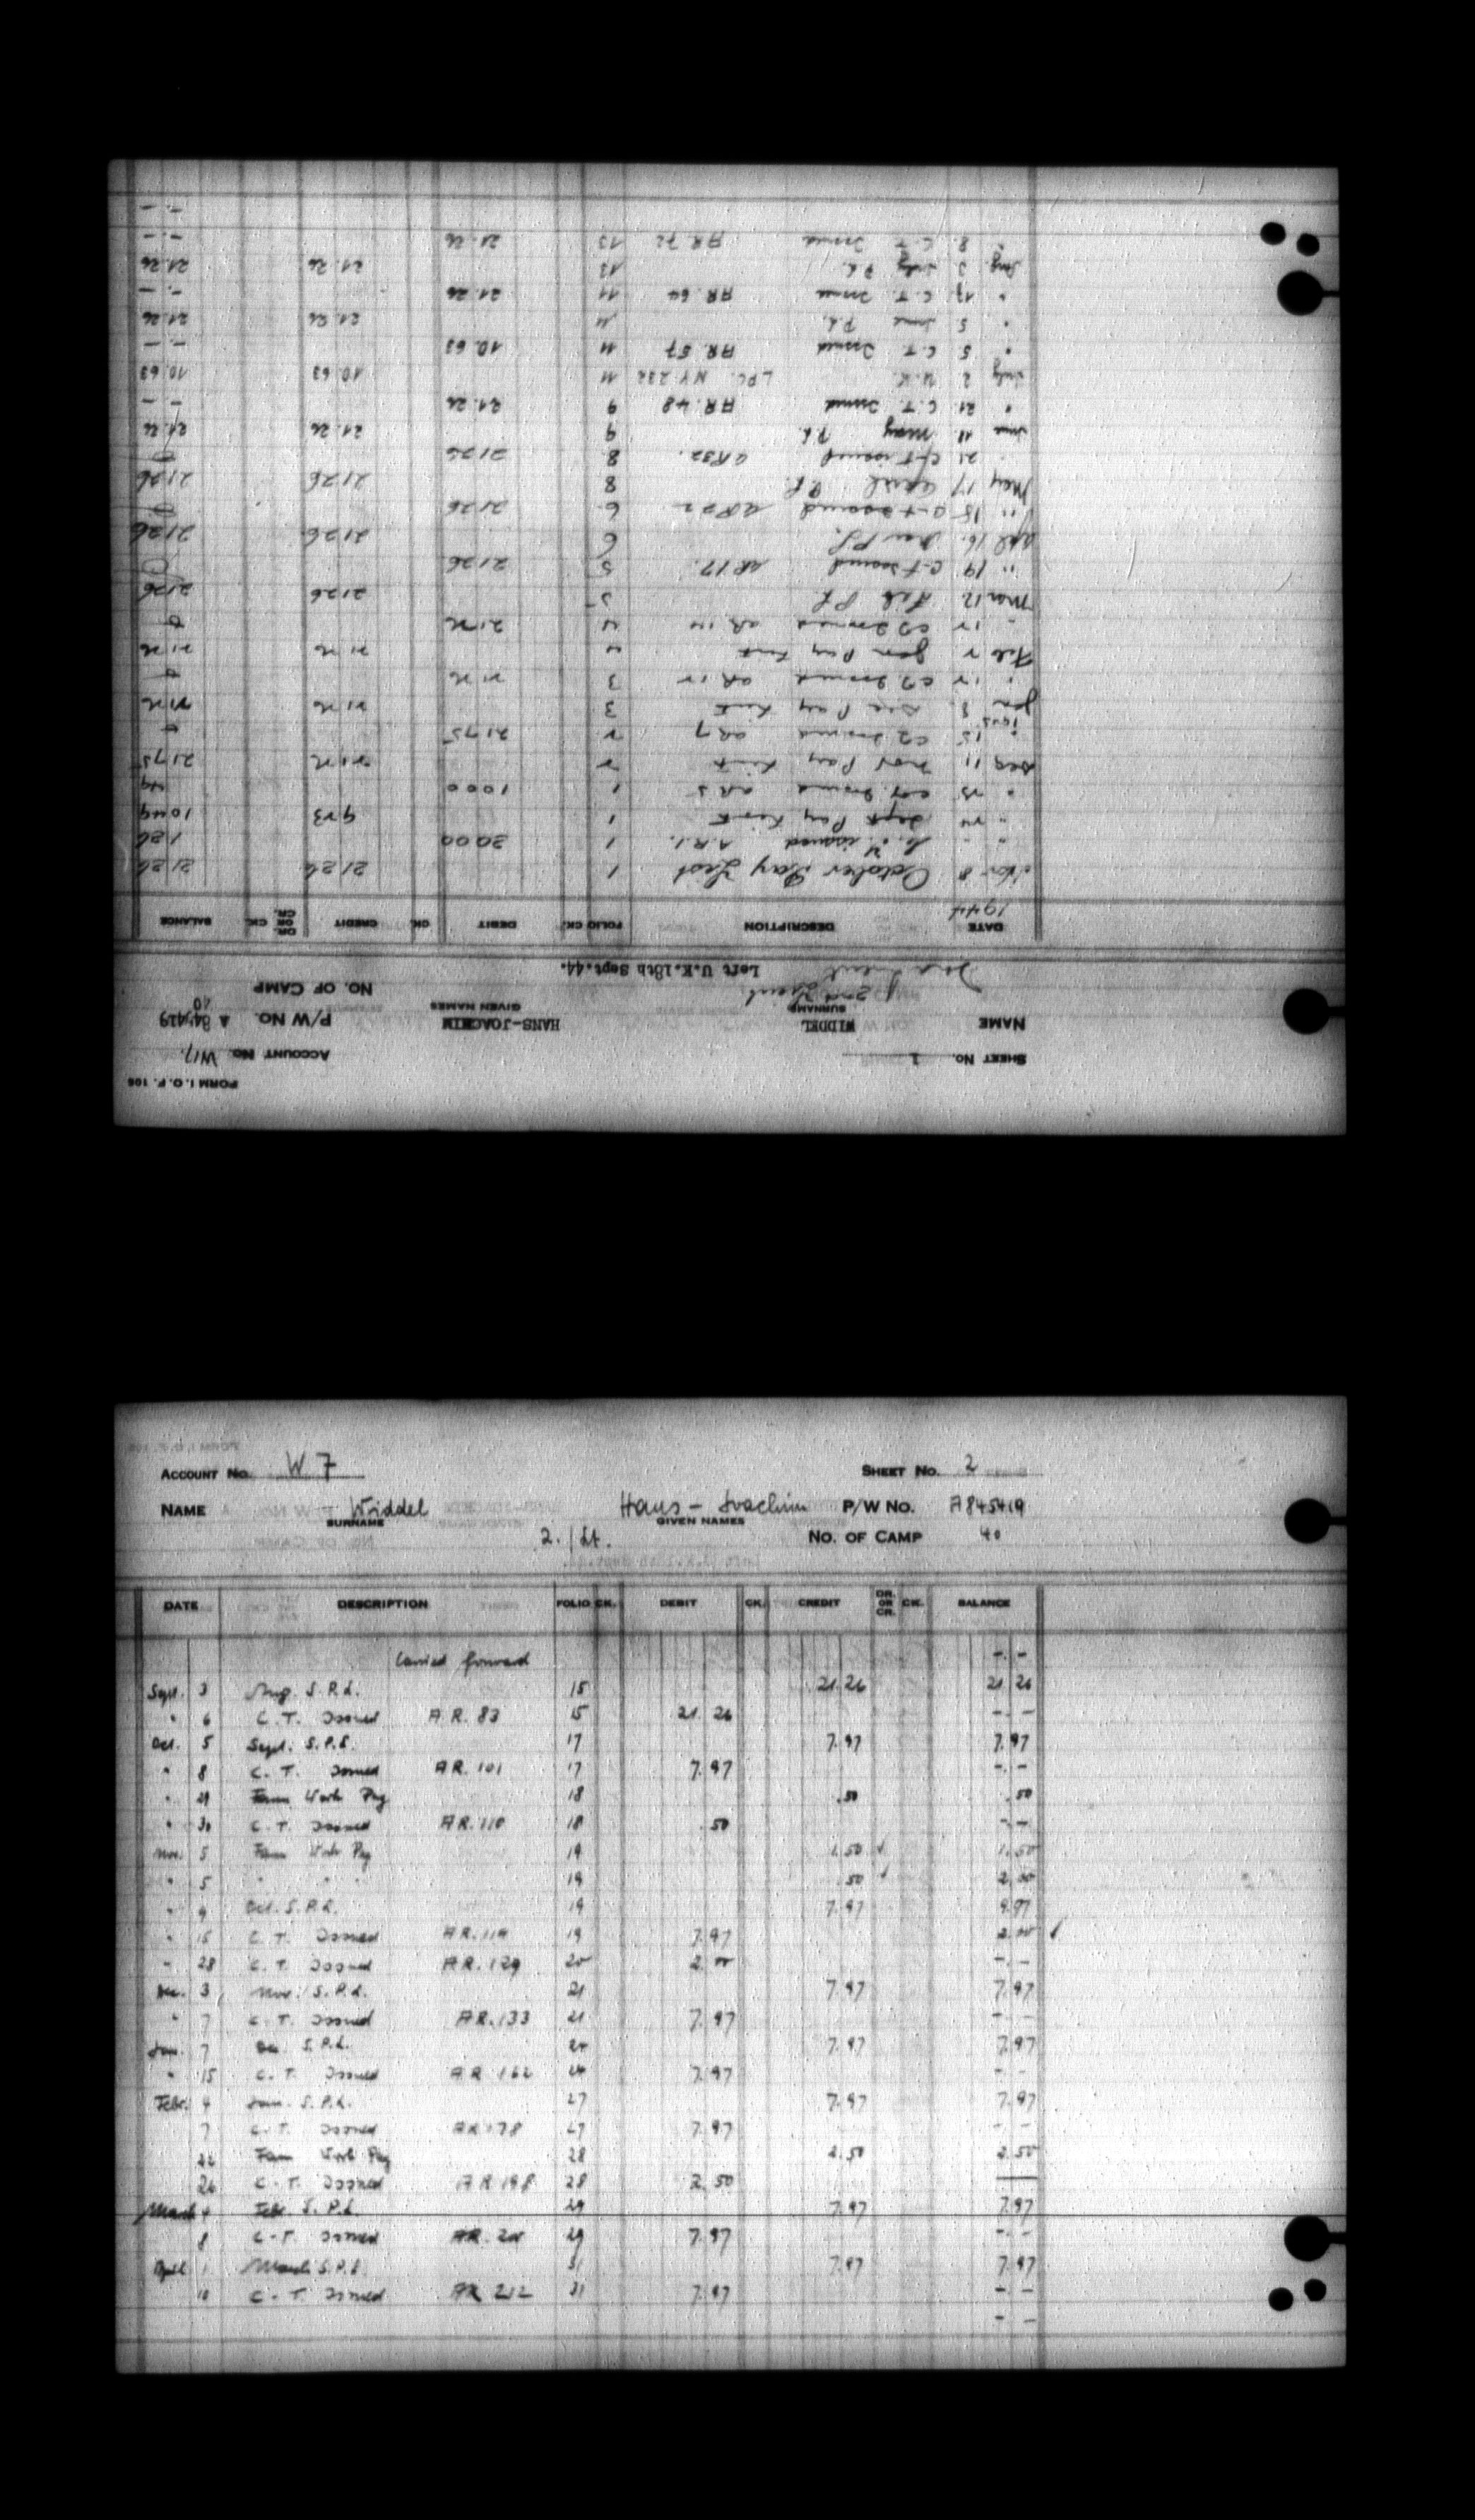 FORM I.O.F. 108
SHEET No. 1 ACCOUNT No. W17.
NAME WIDDEL HANS-JOACHIM P/W No. A 845419
SURNAME GIVEN NAMES
2nd Lieut. NO. OF CAMP 40
Left U.K. 18th Sept. 44.
DATE DESCRIPTION FOLIO CK. DEBIT CK. CREDIT DR. OR CR. CK. BALANCE
1944
Nov 8 October Pay List 1 21 26 21 26
" " C. T. issued A.R.1. 1 20 00 1 26
" Sept Pay List 1 9 23 10 49
" CT Issued AR 5 1 10 00 49
Dec 11 Nov Pay List 2 21 26 21 75
" 15 CT Issued AR 7 2 21 75
1945
Jan 8 Dec Pay List 3 21 26 21 26
" 12 CT Issued AR 12 3 21 26
Feb 2 Jan Pay List 4 21 26 21 26
" 12 CT Issued AR 14 4 21 26
Mar 12 Feb P L 5 21 26 21 26
" 19 C-T Issued AR 17. 5 21 26
Apl 16. Mar P L. 6 21 26 21 26
" 18 C-T Issued AR 22 6 21 26
May 17 April P.L. 8 21 26 21 26
" 21 C-T issued AR32. 8 21 26
June 11 May P.L. 9 21 26 21 26
" 21. C.T. Issued AR. 48 9 21. 26 -.-
July 2 U.K. LPC. NY 232 11 10 63 10. 63
" 5 C.T. Issued AR. 57 11 10. 63 -.-
" 5 June P.L. 11 21. 26 21. 26
" 17 C.T. Issued AR. 64 11 21. 26 -.-
Aug. 3 July P.L. 13 21. 26 21. 26
" 8. C.T. Issued AR 72 13 21. 26 -.-
-.-
ACCOUNT No. W 7 SHEET No. 2
NAME Widdel Hans - Joachim P/W No. A845419
SURNAME GIVEN NAMES
2./Lt. NO. OF CAMP 40
DATE DESCRIPTION FOLIO CK. DEBIT CK. CREDIT DR. OR CR. CK. BALANCE
Carried forward -.-
Sept. 3 Aug. S.P.L. 15 21 26 21 26
" 6 C.T. Issued A.R. 83 15 21 26 -.-
Oct. 5 Sept. S.P.L. 17 7.97 7.97
" 8 C.T. Issued AR. 101 17 7.97 -.-
" 29 Farm Work Pay 18 .50 .50
" 30 C.T. Issued AR. 110 18 .50 -.-
Nov. 5 Farm Work Pay 19 1.50 1.50
" 5 " " " 19 .50 2.00
" 9 Oct. S.P.L. 19 7.97 9.97
" 15 C.T. Issued AR. 119 19 7.97 2.00
" 28 C.T. Issued AR. 129 20 2.00 -.-
Dec. 3 Nov. S.P.L. 21 7.97 7.97
" 7 C.T. Issued AR. 133 21 7.97 -.-
Jan. 7 Dec. S.P.L. 24 7.97 7.97
" 15 C.T. Issued AR 162 24 7.97 - -
Febr. 4 Jan. S.P.L. 27 7.97 7.97
7 C.T. Issued AR 178 27 7.97 - -
22 Farm Work Pay 28 2.50 2.50
26 C.T. Issued AR 198 28 2.50
March 4 Febr. S.P.L. 29 7.97 7.97
8 C.T. Issued AR. 29 7.97 -.-
April 1 March S.P.L. 31 7.97 7.97
10 C.T. Issued AR 212 31 7.97 -.-
- -